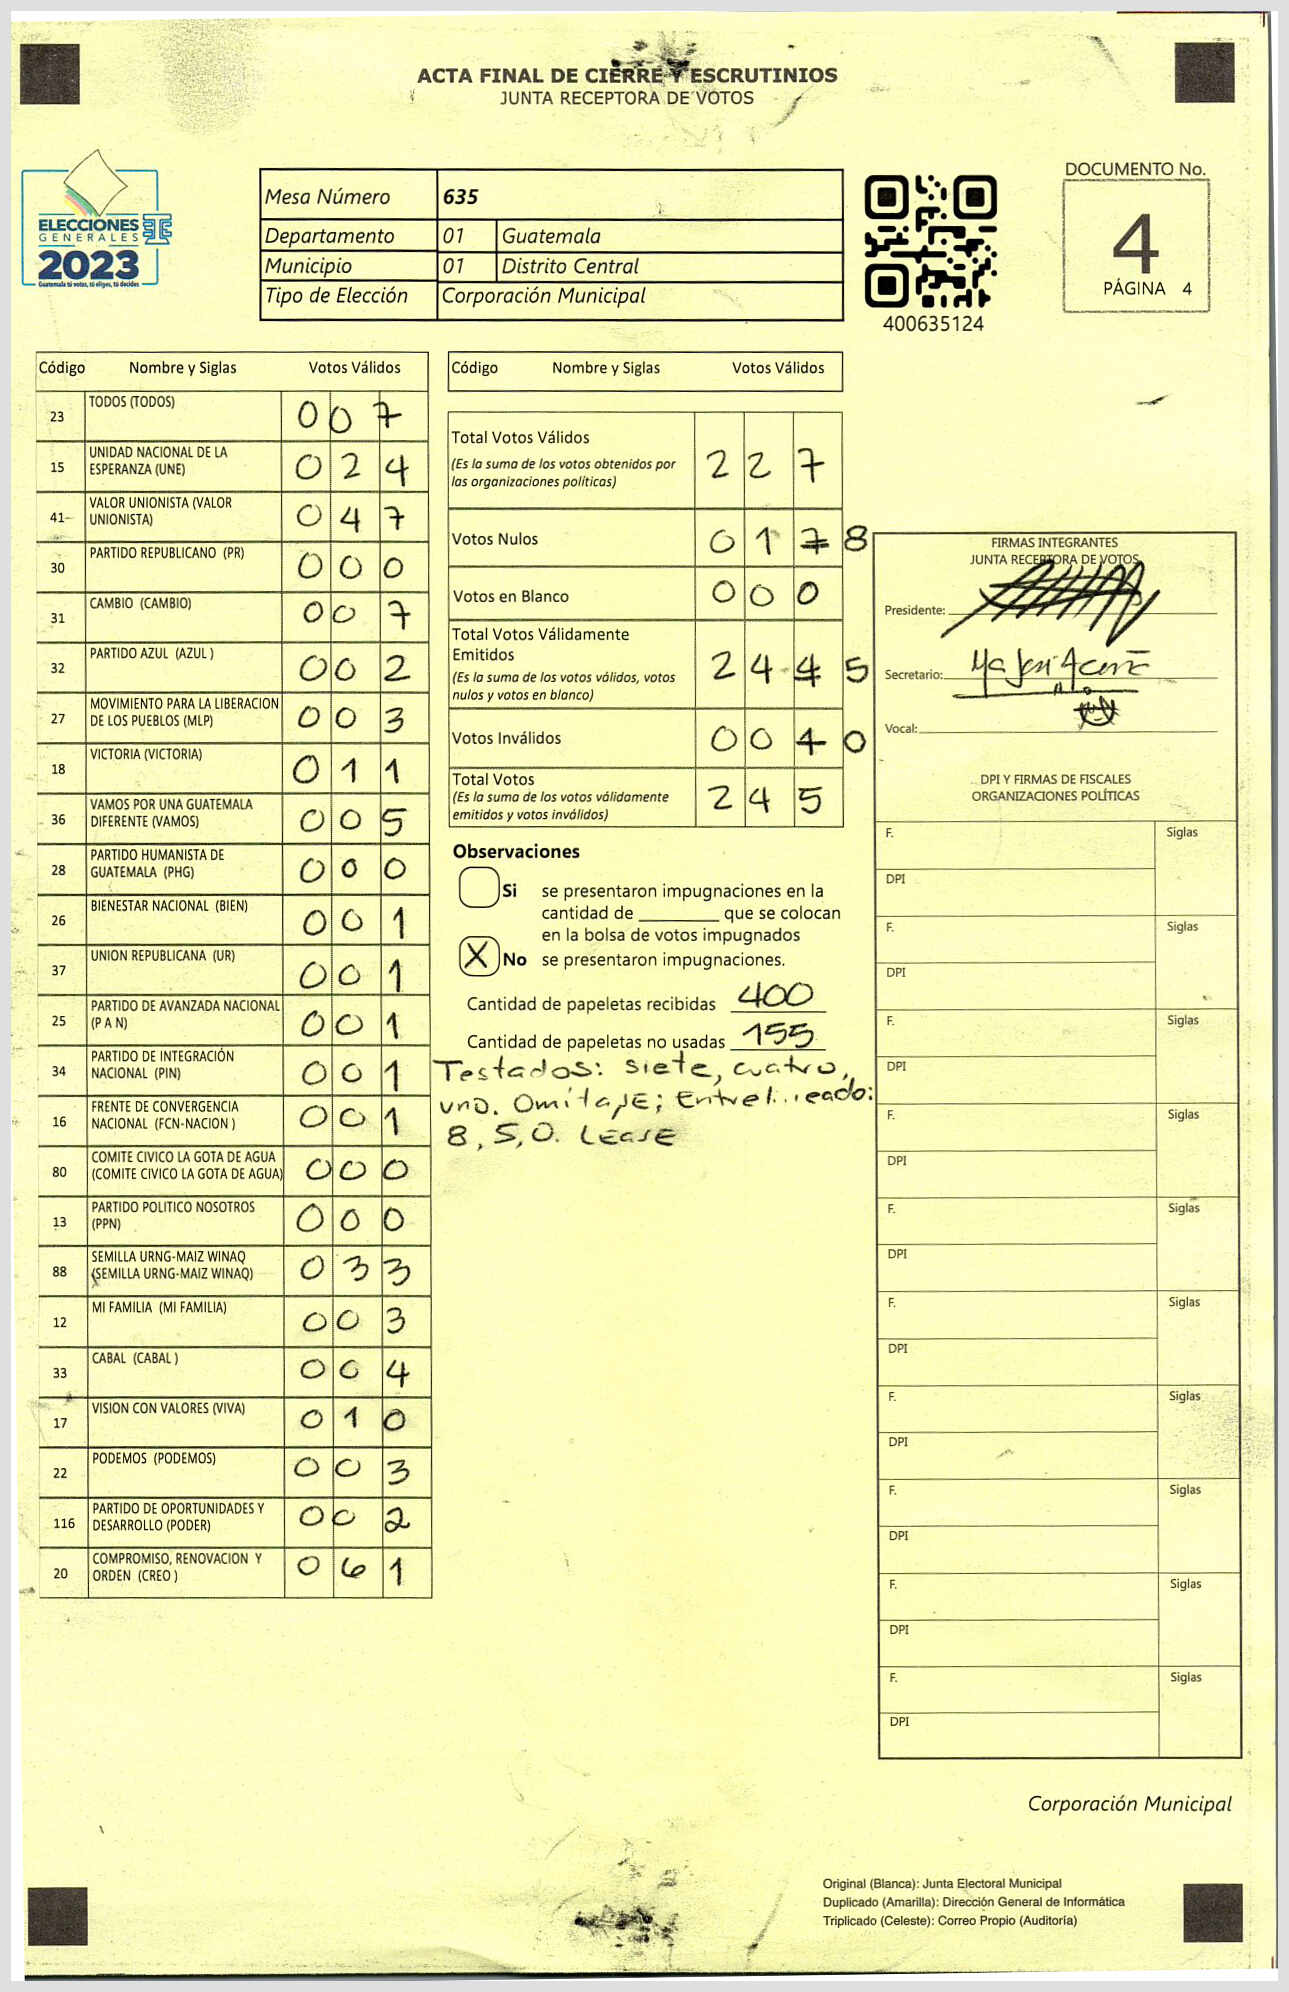 ACTA FINAL DE CIERRE Y ESCRUTINIOS
JUNTA RECEPTORA DE VOTOS
ELECCIONES
GENERALES
2023
Guatemala tú votas, tú eliges, tú decides
Mesa Número 635
Departamento 01 Guatemala
Municipio 01 Distrito Central
Tipo de Elección Corporación Municipal
400635124
DOCUMENTO No.
4
PÁGINA 4
Código Nombre y Siglas Votos Válidos
23 TODOS (TODOS) 0 0 7
15 UNIDAD NACIONAL DE LA
ESPERANZA (UNE) 0 2 4
41 VALOR UNIONISTA (VALOR
UNIONISTA) 0 4 7
30 PARTIDO REPUBLICANO (PR) 0 0 0
31 CAMBIO (CAMBIO) 0 0 7
32 PARTIDO AZUL (AZUL ) 0 0 2
27 MOVIMIENTO PARA LA LIBERACION
DE LOS PUEBLOS (MLP) 0 0 3
18 VICTORIA (VICTORIA) 0 1 1
36 VAMOS POR UNA GUATEMALA
DIFERENTE (VAMOS) 0 0 5
28 PARTIDO HUMANISTA DE
GUATEMALA (PHG) 0 0 0
26 BIENESTAR NACIONAL (BIEN) 0 0 1
37 UNION REPUBLICANA (UR) 0 0 1
25 PARTIDO DE AVANZADA NACIONAL
(P A N) 0 0 1
34 PARTIDO DE INTEGRACIÓN
NACIONAL (PIN) 0 0 1
16 FRENTE DE CONVERGENCIA
NACIONAL (FCN-NACION ) 0 0 1
80 COMITE CIVICO LA GOTA DE AGUA
(COMITE CIVICO LA GOTA DE AGUA) 0 0 0
13 PARTIDO POLITICO NOSOTROS
(PPN) 0 0 0
88 SEMILLA URNG-MAIZ WINAQ
(SEMILLA URNG-MAIZ WINAQ) 0 3 3
12 MI FAMILIA (MI FAMILIA) 0 0 3
33 CABAL (CABAL ) 0 0 4
17 VISION CON VALORES (VIVA) 0 1 0
22 PODEMOS (PODEMOS) 0 0 3
116 PARTIDO DE OPORTUNIDADES Y
DESARROLLO (PODER) 0 0 2
20 COMPROMISO, RENOVACION Y
ORDEN (CREO ) 0 6 1
Código Nombre y Siglas Votos Válidos
Total Votos Válidos
(Es la suma de los votos obtenidos por
las organizaciones políticas) 2 2 7
Votos Nulos 0 1 7 8
Votos en Blanco 0 0 0
Total Votos Válidamente
Emitidos
(Es la suma de los votos válidos, votos
nulos y votos en blanco) 2 4 4 5
Votos Inválidos 0 0 1 0
Total Votos
(Es la suma de los votos válidamente
emitidos y votos inválidos) 2 4 5
Observaciones
Si se presentaron impugnaciones en la
cantidad de ________ que se colocan
en la bolsa de votos impugnados
X No se presentaron impugnaciones.
Cantidad de papeletas recibidas 400
Cantidad de papeletas no usadas 155
Testados: siete, cuatro,
uno. Omitase; Entrelineado:
8, 5, 0. Lease
FIRMAS INTEGRANTES
JUNTA RECEPTORA DE VOTOS
Presidente:
Secretario:
Vocal:
DPI Y FIRMAS DE FISCALES
ORGANIZACIONES POLÍTICAS
F. Siglas
DPI
F. Siglas
DPI
F. Siglas
DPI
F. Siglas
DPI
F. Siglas
DPI
F. Siglas
DPI
F. Siglas
DPI
F. Siglas
DPI
F. Siglas
DPI
F. Siglas
DPI
Corporación Municipal
Original (Blanca): Junta Electoral Municipal
Duplicado (Amarilla): Dirección General de Informática
Triplicado (Celeste): Correo Propio (Auditoría)